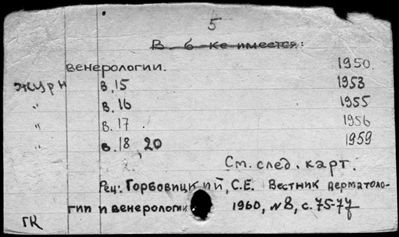 5
В б-ке имеется:
венерологии. 1950.
журн в. 15 1953
" в. 16 1955
" в. 17 1956
" в. 18, 20 1959
См. след. карт.
Рец: Горбовицкий, С.Е. Вестник дерматоло-
гии и венерологии 1960, №8, с. 75-77
ГК